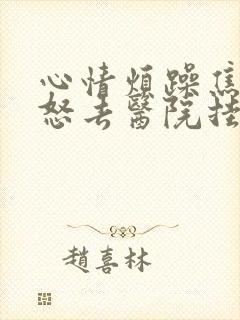 心情煩躁焦
怒去醫院掛
趙喜林